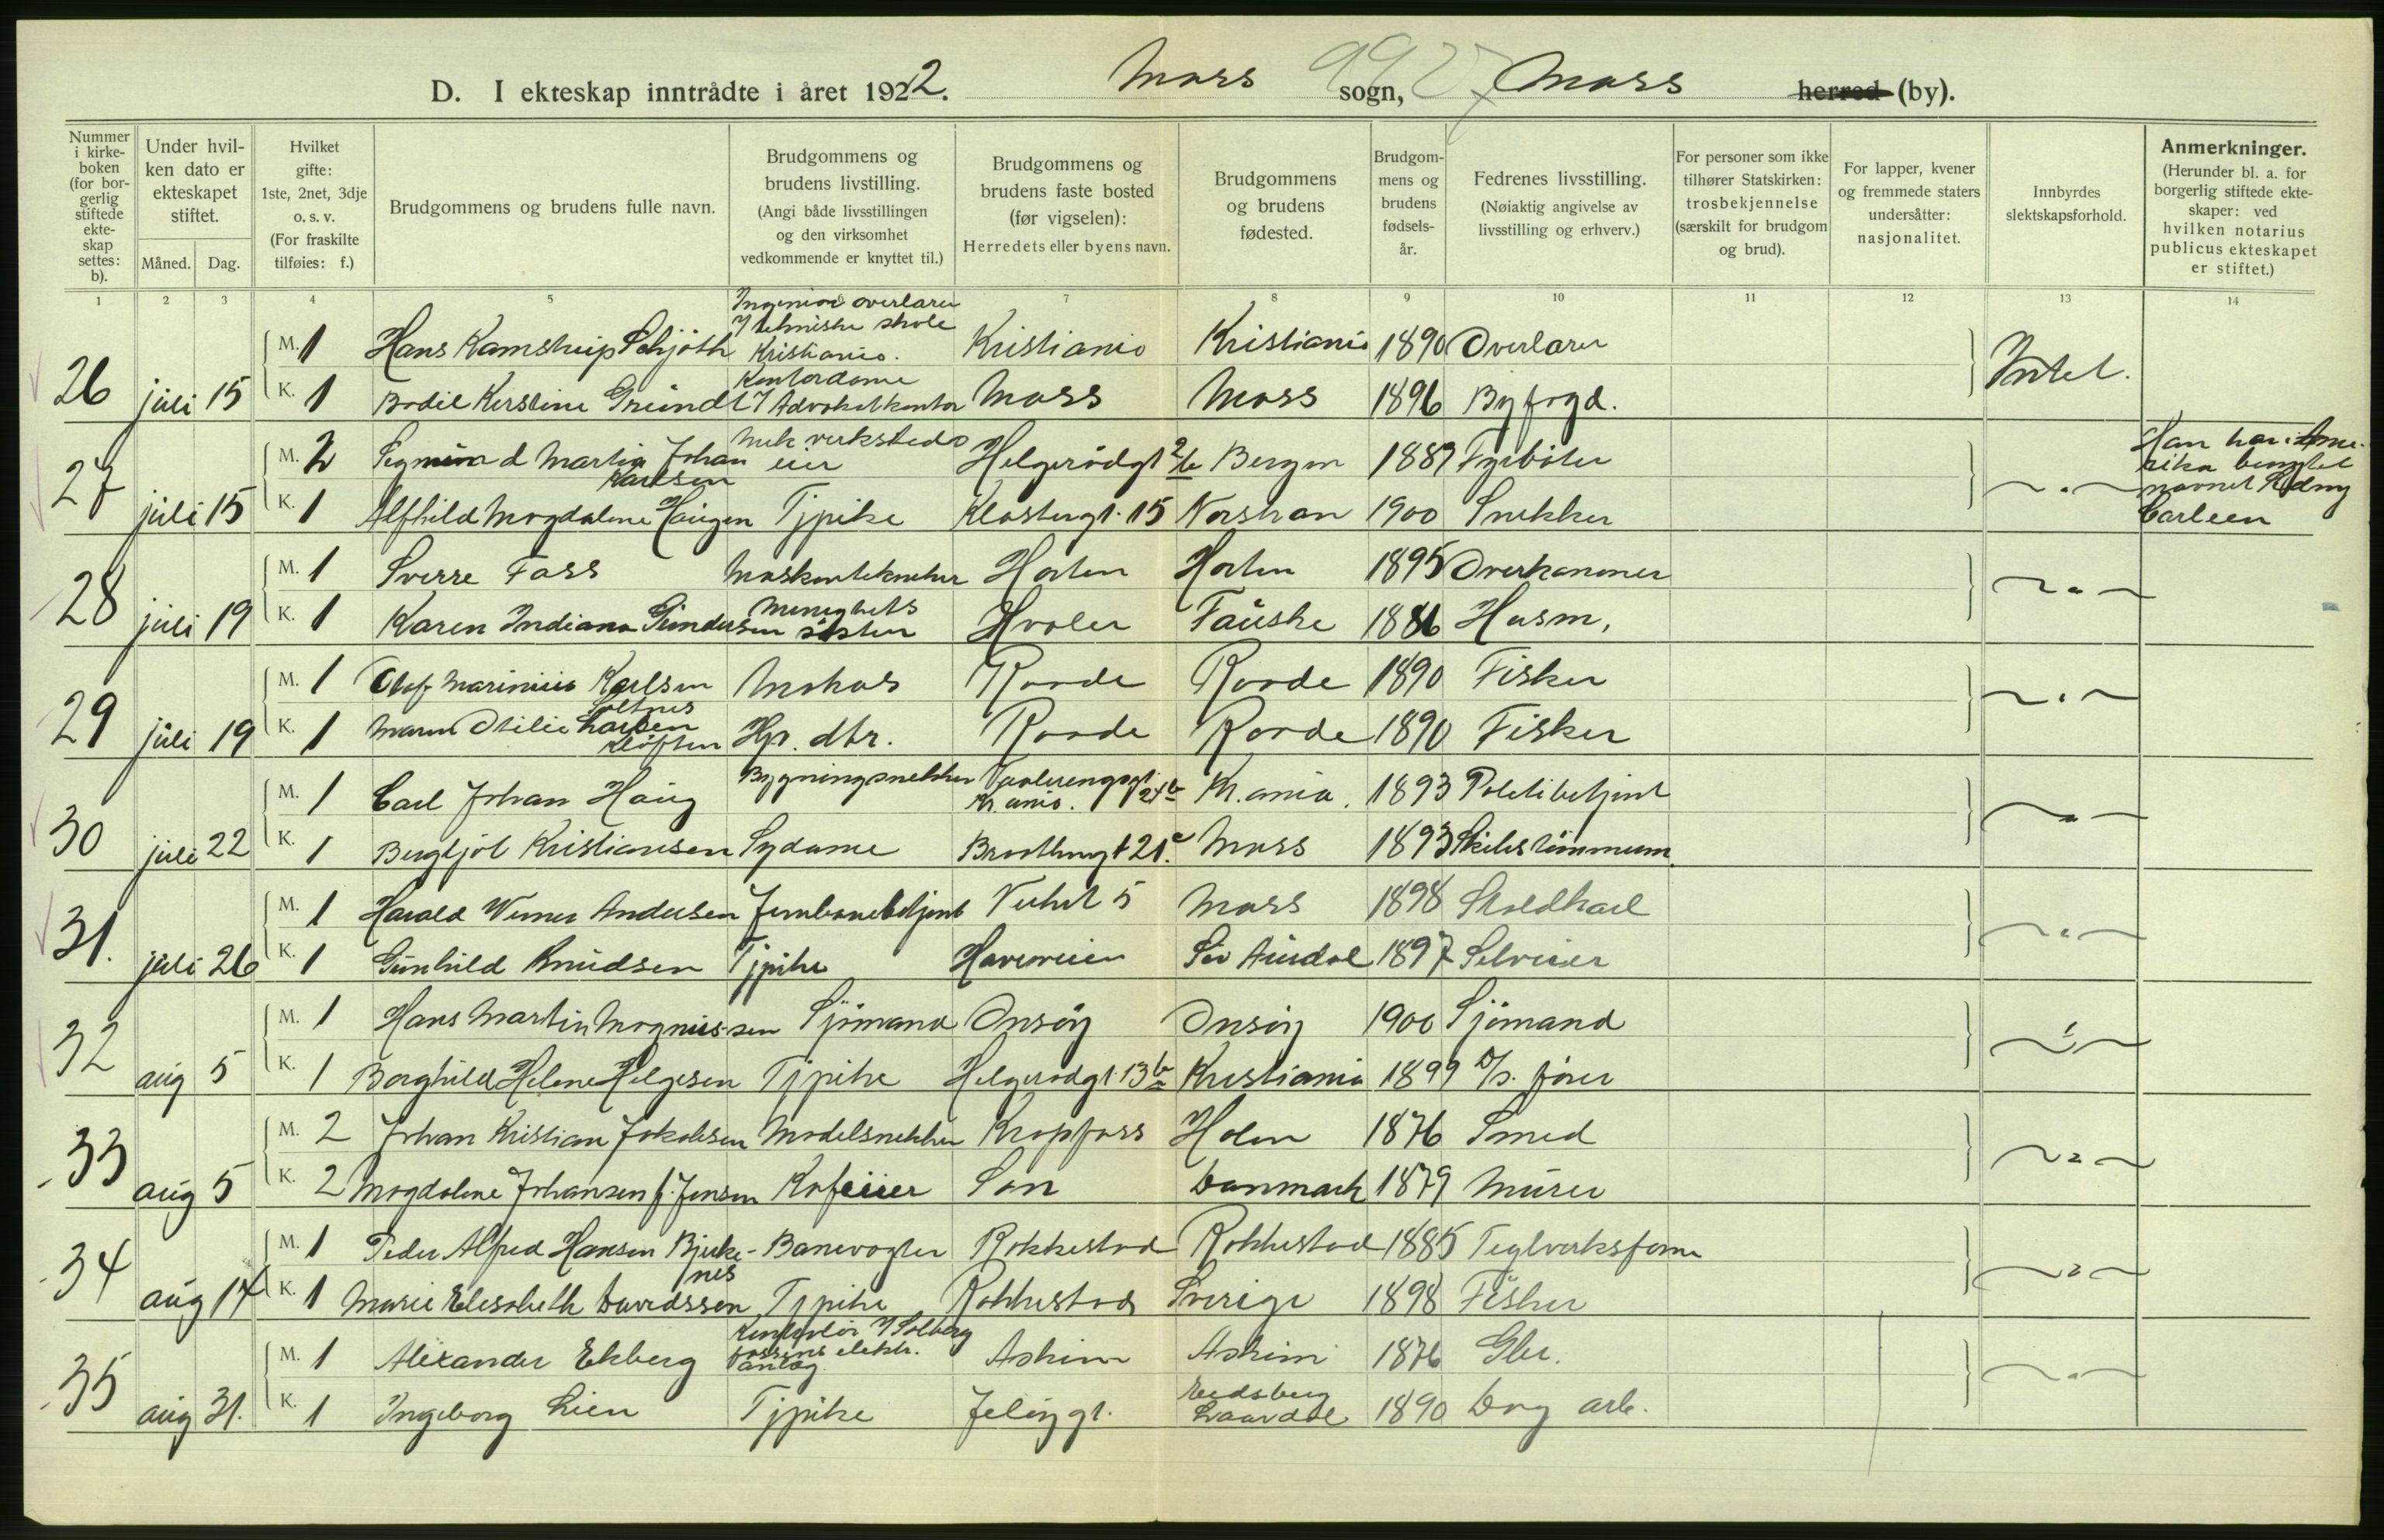 D. I ekteskap inntrådte i året 1922. Moss sogn, Moss herred (by).
Nummer i kirkeboken (for borgerlig stiftede ekteskap settes: b).
Under hvilken dato er ekteskapet stiftet.
Måned. Dag.
Hvilket gifte: 1ste, 2net, 3dje o. s. v. (For fraskilte tilføies: f.)
Brudgommens og brudens fulle navn.
Brudgommens og brudens livstilling. (Angi både livsstillingen og den virksomhet vedkommende er knyttet til.)
Brudgommens og brudens faste bosted (før vigselen): Herredets eller byens navn.
Brudgommens og brudens fødested.
Brudgommens og brudens fødselsår.
Fedrenes livsstilling. (Nøiaktig angivelse av livsstilling og erhverv.)
For personer som ikke tilhører Statskirken: trosbekjennelse (særskilt for brudgom og brud).
For lapper, kvener og fremmede staters undersåtter: nasjonalitet.
Innbyrdes slektskapsforhold.
Anmerkninger. (Herunder bl. a. for borgerlig stiftede ekteskaper: ved hvilken notarius publicus ekteskapet er stiftet.)
1 2 3 4 5 7 8 9 10 11 12 13 14
26 juli 15
M. 1 Hans Kamstrup Schjøth Ingeniør overlærer v/ tekniske skole Kristiania. Kristiania Kristiania 1890 Overlærer
K. 1 Bodil Kirstine Gründt Kontordame v/ Advokatkontor Moss Moss 1896 Byfogd. Intet.
27 juli 15
M. 2 Sigmund Martin Johan Karlsen mek verksteds eier Helgerødgt 2/b Bergen 1889 Fyrbøter
K. 1 Alfhild Magdalene Haugen Tjpike Klostergt. 15 1900 Snekker
Han har i Amerika benyttet navnet Sidney Carleen
28 juli 19
M. 1 Sverre Foss Maskintekniker Horten Horten 1895 Overkanoner
K. 1 Karen Indiana Gundersen Menighets søster Hvaler Fauske 1886 Husm,
29 juli 19
M. 1 Olaf Marinius Karlsen Saltnes Mohas Raade Raade 1890 Fisker
K. 1 Maren Otilie Larsen Kløften Hp. dtr. Raade Raade 1890 Fisker
30 juli 22
M. 1 Carl Johan Haug Bygningssnekker Vaalerenggt. 24b Kr.ania. Kr.ania. 1893 Politibetjent
K. 1 Bergljot Kristiansen Sydame 21c Moss 1893 Skibstømmerm.
31. juli 26
M. 1 Harald Werner Andersen Jernbanebetjent 5 Moss 1898 Staldkarl
K. 1 Gunhild Knudsen Tjpike Havreveien Sør Aurdal 1897 Selveier
32 aug 5
M. 1 Hans Martin Magnussen Sjömand Onsøy Onsøy 1900 Sjömand
K. 1 Borghild Helene Helgesen Tjpike Helgerødgt. 13b Kristiania 1899 D/s. fører
33 aug 5
M. 2 Johan Kristian Jakobsen Modelsnekker Kropfoss Holen 1876 Smed
K. 2 Magdalene Johansen f. Jensen Kafeeier Son Danmark 1879 Murer
34 aug 14
M. 1 Peder Alfred Hansen Bjerkenes Banevogter Rakkestad Rakkestad 1885 Teglverksform
K. 1 Marie Elisabeth Davidssen Tjpike Rakkestad Sverige 1898 Fisker
35 aug 31.
M. 1 Alexander Ekberg Kontrolør v/ Solbergfossens elektr. anlæg. Askim Askim 1876 Gbr.
K. 1 Ingeborg Lien Tjpike Jeløygt. Eidsberg 1890 Dag arb.